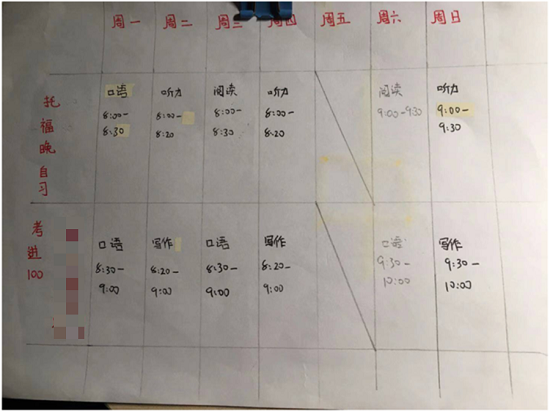 周一 周二 周三 周四 周五 周六 周日
托福晚自习
口语 听力 阅读 听力 阅读 听力
8:00- 8:00- 8:00- 8:00- 9:00-9:30 9:00-
8:30 8:20 8:30 8:20 9:30
考进100
口语 写作 口语 写作 口语 写作
8:30- 8:20- 8:30- 8:20- 9:30- 9:30-
9:00 9:00 9:00 9:00 10:00 10:00